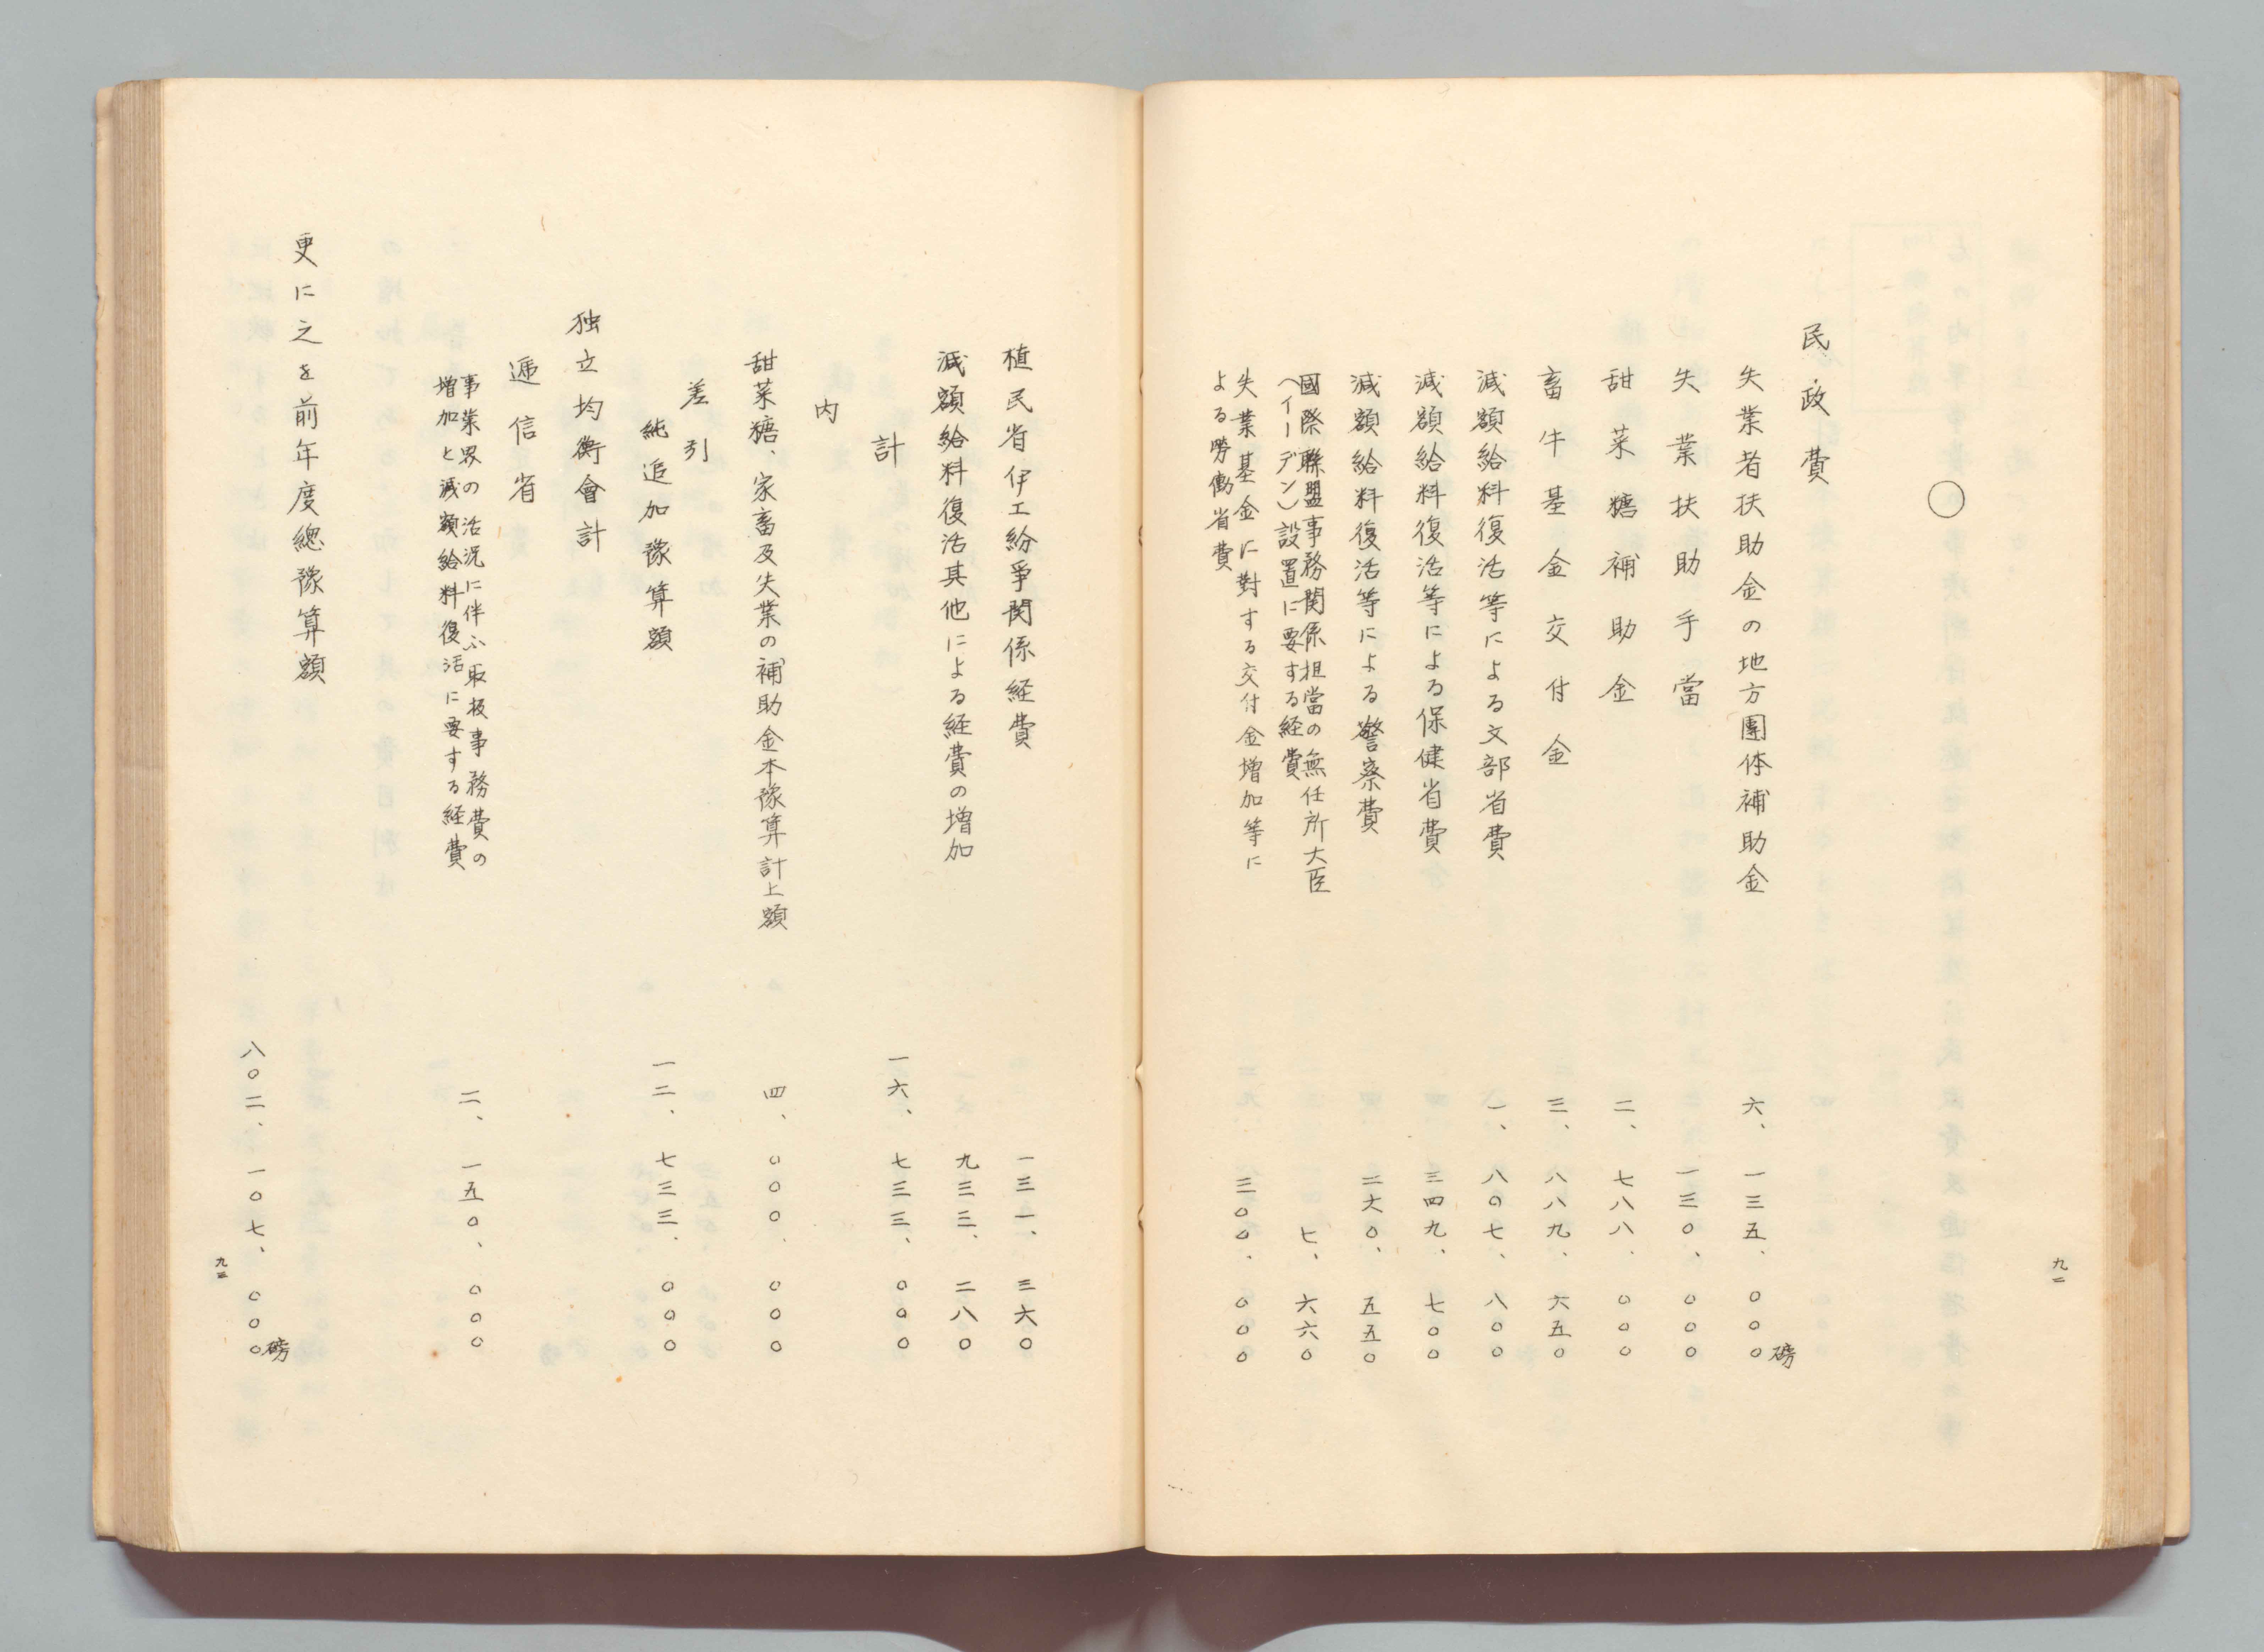 ○
民政費
失業者扶助金の地方團体補助金 六、一三五、〇〇〇磅
失業扶助手當 一三〇、〇〇〇
甜菜糖補助金 二、七八八、〇〇〇
畜牛基金交付金 三、八八九、六五〇
減額給料復活等による文部省費 一、八〇七、八〇〇
減額給料復活等による保健省費 三四九、七〇〇
減額給料復活等による警察費 二六〇、五五〇
國際聯盟事務関係担當の無任所大臣
(イーデン)設置に要する経費 七、六六〇
失業基金に對する交付金増加等に
よる勞働省費 三〇〇、〇〇〇
九二
植民省伊エ紛爭関係経費 一三一、三六〇
減額給料復活其他による経費の増加 九三三、二八〇
計 一六、七三三、〇〇〇
内
甜菜糖、家畜及失業の補助金本豫算計上額 四、〇〇〇、〇〇〇
差引
純追加豫算額 一二、七三三、〇〇〇
独立均衡會計
逓信省
事業界の活況に伴ふ取扱事務費の
増加と減額給料復活に要する経費 二、一五〇、〇〇〇
更に之を前年度總豫算額
八〇二、一〇七、〇〇〇磅
九三